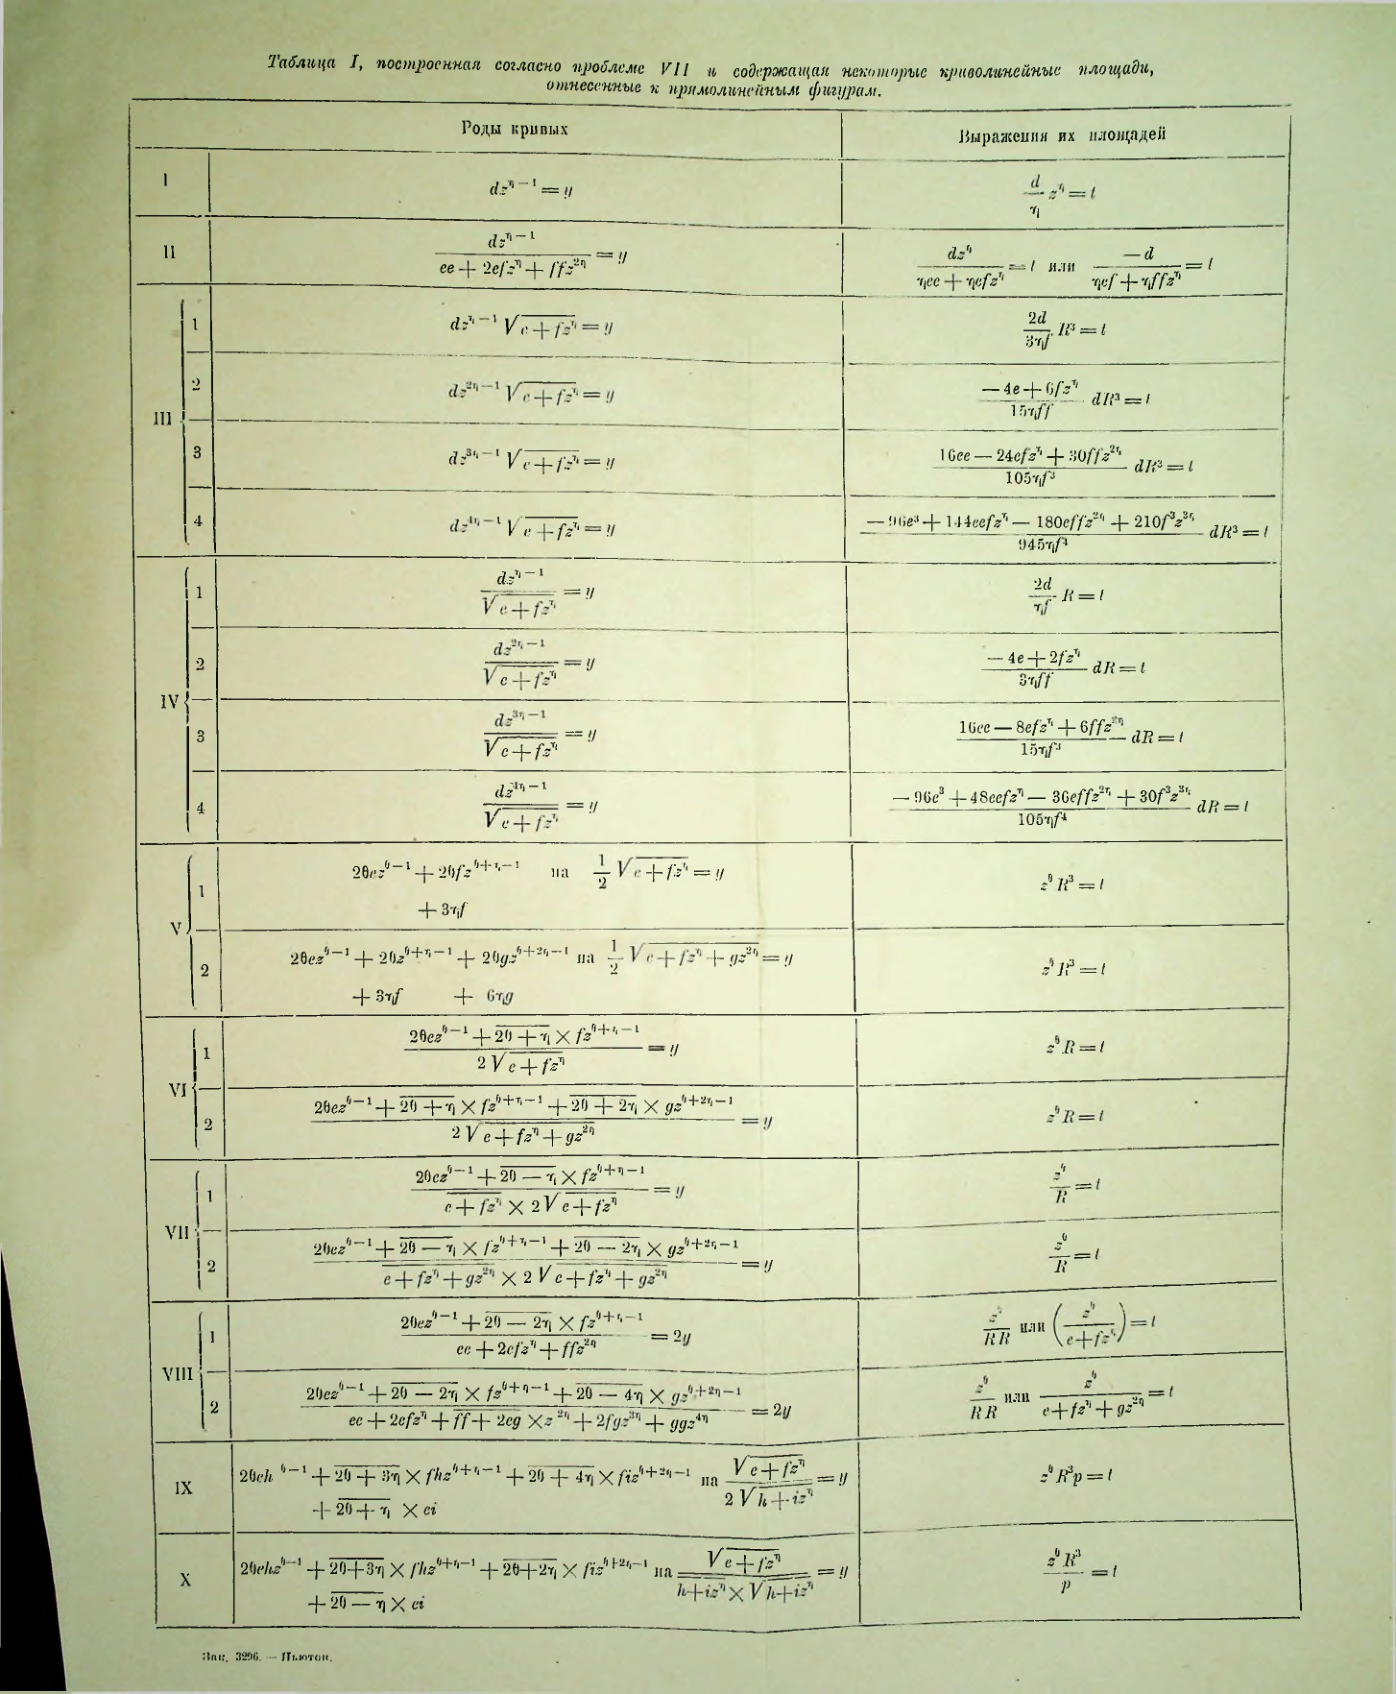 Таблица I, построенная согласно проблеме VII и содержащая некоторые криволинейные площади,
отнесенные к прямолинейным фигурам.
Роды кривых Выражения их площадей
I dz^{η−1} = y \frac{d}{η} z^η = t
II \frac{dz^{η−1}}{ee + 2efz^η + ffz^{2η}} = y \frac{dz^η}{ηee + ηefz^η} = t или \frac{−d}{ηef + ηffz^η} = t
III 1 dz^{η−1} √\overline{e + fz^η} = y \frac{2d}{3ηf} R³ = t
2 dz^{2η−1} √\overline{e + fz^η} = y \frac{−4e + 6fz^η}{15ηff} dR³ = t
3 dz^{3η−1} √\overline{e + fz^η} = y \frac{16ee − 24efz^η + 30ffz^{2η}}{105ηf³} dR³ = t
4 dz^{4η−1} √\overline{e + fz^η} = y \frac{−96e³ + 144eefz^η − 180effz^{2η} + 210f³z^{3η}}{945ηf⁴} dR³ = t
IV 1 \frac{dz^{η−1}}{√\overline{e + fz^η}} = y \frac{2d}{ηf} R = t
2 \frac{dz^{2η−1}}{√\overline{e + fz^η}} = y \frac{−4e + 2fz^η}{3ηff} dR = t
3 \frac{dz^{3η−1}}{√\overline{e + fz^η}} = y \frac{16ee − 8efz^η + 6ffz^{2η}}{15ηf³} dR = t
4 \frac{dz^{4η−1}}{√\overline{e + fz^η}} = y \frac{−96e³ + 48eefz^η − 36effz^{2η} + 30f³z^{3η}}{105ηf⁴} dR = t
V 1 2θez^{θ−1} + 2θfz^{θ+η−1} на \frac{1}{2} √\overline{e + fz^η} = y z^θ R³ = t
+ 3ηf
2 2θez^{θ−1} + 2θz^{θ+η−1} + 2θgz^{θ+2η−1} на \frac{1}{2} √\overline{e + fz^η + gz^{2η}} = y z^θ R³ = t
+ 3ηf + 6ηg
VI 1 \frac{2θez^{θ−1} + \overline{2θ + η} × fz^{θ+η−1}}{2 √\overline{e + fz^η}} = y z^θ R = t
2 \frac{2θez^{θ−1} + \overline{2θ + η} × fz^{θ+η−1} + \overline{2θ + 2η} × gz^{θ+2η−1}}{2 √\overline{e + fz^η + gz^{2η}}} = y z^θ R = t
VII 1 \frac{2θez^{θ−1} + \overline{2θ − η} × fz^{θ+η−1}}{\overline{e + fz^η} × 2 √\overline{e + fz^η}} = y \frac{z^θ}{R} = t
2 \frac{2θez^{θ−1} + \overline{2θ − η} × fz^{θ+η−1} + \overline{2θ − 2η} × gz^{θ+2η−1}}{\overline{e + fz^η + gz^{2η}} × 2 √\overline{e + fz^η + gz^{2η}}} = y \frac{z^θ}{R} = t
VIII 1 \frac{2θez^{θ−1} + \overline{2θ − 2η} × fz^{θ+η−1}}{ee + 2efz^η + ffz^{2η}} = 2y \frac{z^θ}{RR} или (\frac{z^θ}{e + fz^η}) = t
2 \frac{2θez^{θ−1} + \overline{2θ − 2η} × fz^{θ+η−1} + \overline{2θ − 4η} × gz^{θ+2η−1}}{ee + 2efz^η + \overline{ff + 2eg} × z^{2η} + 2fgz^{3η} + ggz^{4η}} = 2y \frac{z^θ}{RR} или \frac{z^θ}{e + fz^η + gz^{2η}} = t
IX 2θeh^{θ−1} + \overline{2θ + 3η} × fhz^{θ+η−1} + \overline{2θ + 4η} × fiz^{θ+2η−1} на \frac{√\overline{e + fz^η}}{2 √\overline{h + iz^η}} = y z^θ R³p = t
+ \overline{2θ + η} × ei
X 2θehz^{θ−1} + \overline{2θ + 3η} × fhz^{θ+η−1} + \overline{2θ + 2η} × fiz^{θ+2η−1} на \frac{√\overline{e + fz^η}}{\overline{h + iz^η} × √\overline{h + iz^η}} = y \frac{z^θ R³}{p} = t
+ \overline{2θ − η} × ei
Зак. 3296. — Ньютон.